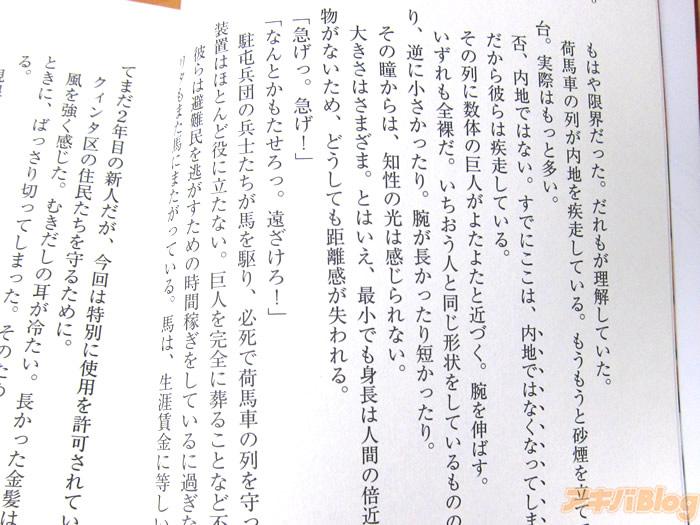 もはや限界だった。だれもが理解していた。
荷馬車の列が内地を疾走している。もうもうと砂煙を立て
台。実際はもっと多い。
否、内地ではない。すでにここは、内地ではなくなってしま
だから彼らは疾走している。
その列に数体の巨人がよたよたと近づく。腕を伸ばす。
いずれも全裸だ。いちおう人と同じ形状をしているものの
り、逆に小さかったり。腕が長かったり短かったり。
その瞳からは、知性の光は感じられない。
大きさはさまざま。とはいえ、最小でも身長は人間の倍近
物がないため、どうしても距離感が失われる。
「急げっ。急げ！」
「なんとかもたせろっ。遠ざけろ！」
駐屯兵団の兵士たちが馬を駆り、必死で荷馬車の列を守っ
装置はほとんど役に立たない。巨人を完全に葬ることなど不
彼らは避難民を逃がすための時間稼ぎをしているに過ぎな
リタもまた馬にまたがっている。馬は、生涯賃金に等しい
てまだ2年目の新人だが、今回は特別に使用を許可されてい
クィンタ区の住民たちを守るために。
風を強く感じた。むきだしの耳が冷たい。長かった金髪は
ときに、ばっさり切ってしまった。そのため
る。
アキバBlog